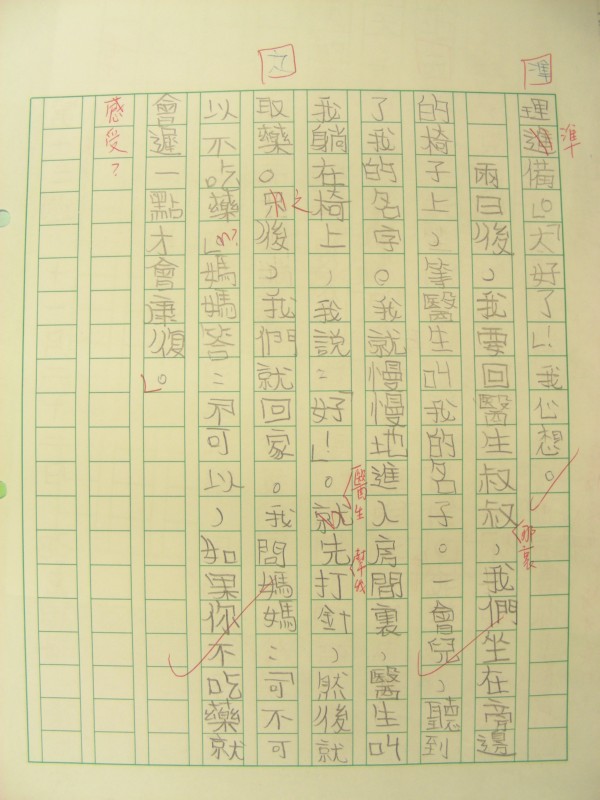 準
之
理準備。」「大好了」!我心想。
準
兩日後,我要回醫生叔叔,我們坐在旁邊
那裏
的椅子上,等醫生叫我的名子。一會兒,聽到
了我的名字。我就慢慢地進入房間裏,醫生叫
我躺在椅上,我說:「好」!。就先打針,然後就
醫生
之
取藥。後,我們就回家。我問媽媽:「可不可
以不吃藥。」媽媽答:「不可以,如果你不吃藥就
會遲一點才會康復。」
感受?